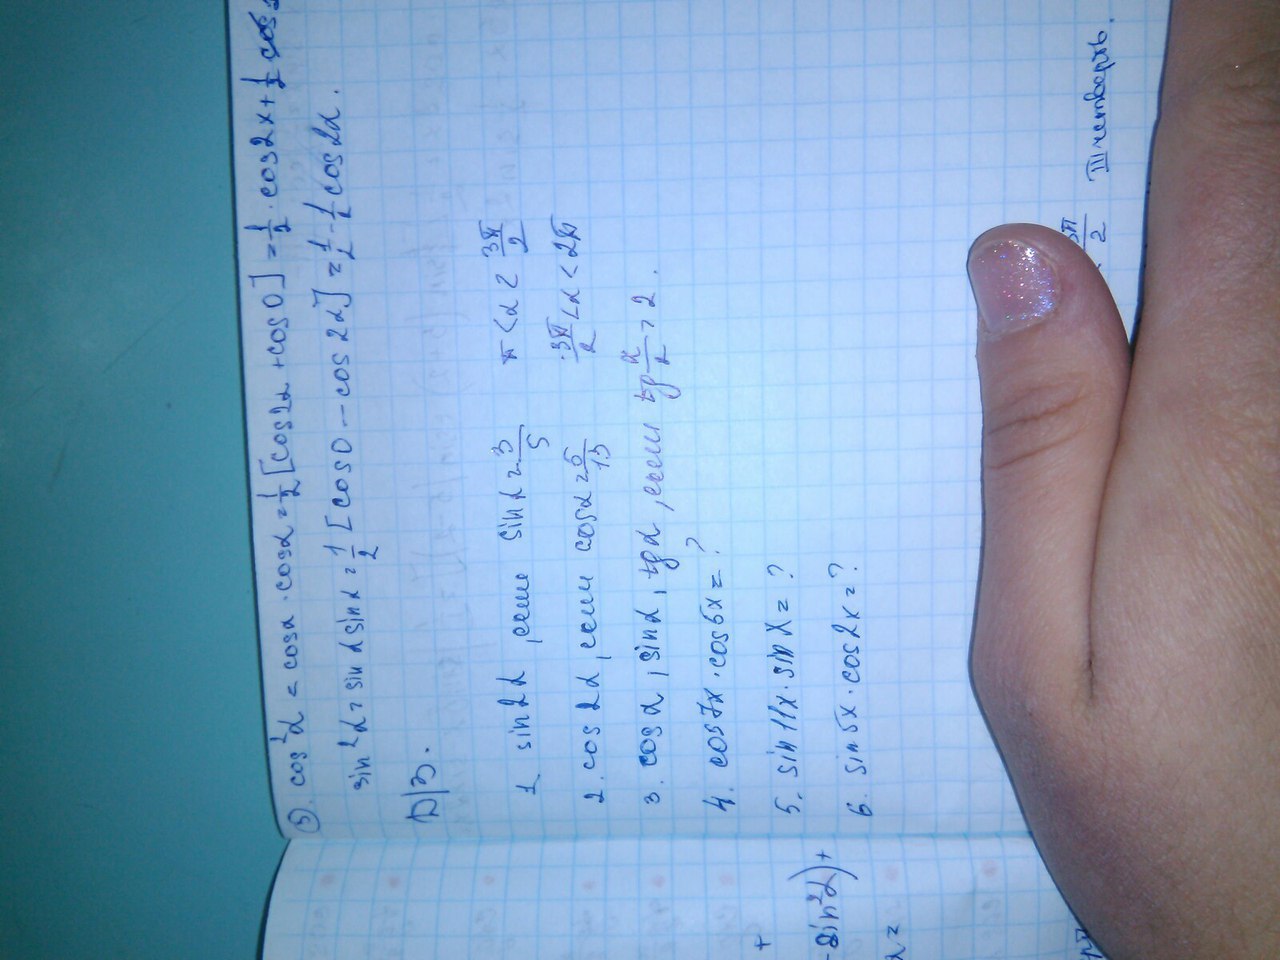 ⑤. cos²α = cosα · cosα = 1/2 [cos2α + cos0] = 1/2 · cos2x + 1/2 cos
sin²α = sinα sinα = 1/2 [cos0 - cos2α] = 1/2 - 1/2 cos2α.
D/з.
1 sin2α, если sinα = 3/5 π < α < 3π/2
2. cos2α, если cosα = 5/13 3π/2 < α < 2π
3. cosα, sinα, tgα, если tg α/2 = 2.
4. cos7x · cos5x = ?
5. sin11x · sinx = ?
6. sin5x · cos2x = ?
3π/2 III четверть.
+
- sin²α) +
α =